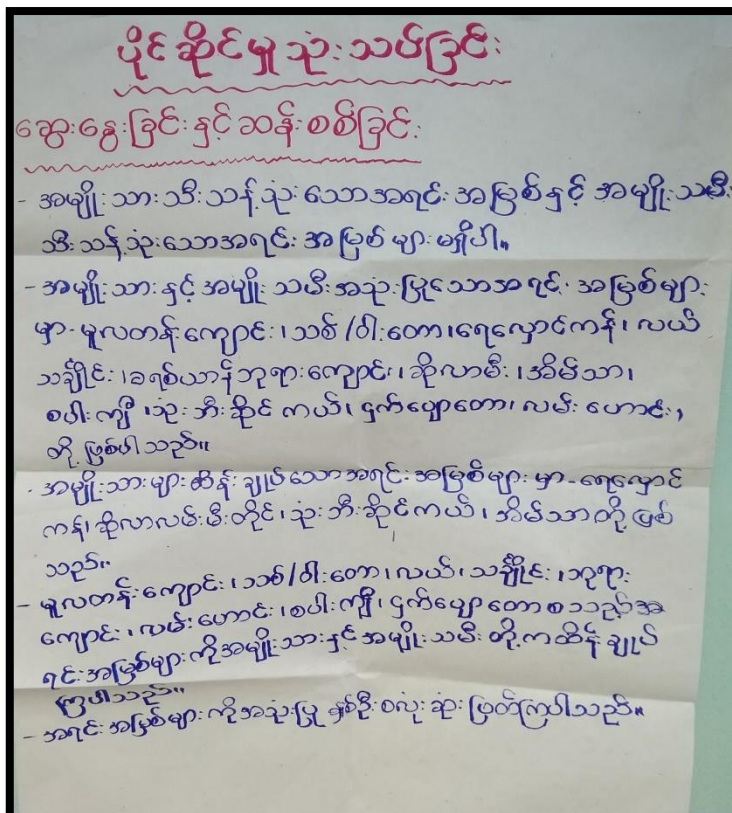 ပိုင်ဆိုင်မှု သုံးသပ်ခြင်း
ဆွေးနွေးခြင်းနှင့်ဆန်းစစ်ခြင်း
- အမျိုးသားသီးသန့်သုံးသောအရင်းအမြစ်နှင့် အမျိုးသမီး
သီးသန့်သုံးသောအရင်းအမြစ်များမရှိပါ။
- အမျိုးသားနှင့်အမျိုးသမီးအသုံးပြုသောအရင်းအမြစ်များ
မှာ-မူလတန်းကျောင်း၊သစ်/ဝါးတော၊ရေလှောင်ကန်၊လယ်
သင်္ချိုင်း၊ခရစ်ယာန်ဘုရားကျောင်း၊ဆိုလာမီး၊အိမ်သာ၊
စပါးကျီ၊သုံးဘီးဆိုင်ကယ်၊ငှက်ပျောတော၊လမ်းဟောင်း၊
တို့ဖြစ်ပါသည်။
- အမျိုးသားများထိန်းချုပ်သောအရင်းအမြစ်များမှာ-ရေလှောင်
ကန်၊ဆိုလာလမ်းမီးတိုင်၊သုံးဘီးဆိုင်ကယ်၊အိမ်သာတို့ဖြစ်
သည်။
- မူလတန်းကျောင်း၊သစ်/ဝါးတော၊လယ်၊သင်္ချိုင်း၊ဘုရား
ကျောင်း၊လမ်းဟောင်း၊စပါးကျီ၊ငှက်ပျောတောစသည့်အ
ရင်းအမြစ်များကိုအမျိုးသားနှင့်အမျိုးသမီးတို့ကထိန်းချုပ်
ကြပါသည်။
- အရင်းအမြစ်များကိုအသုံးပြုနှစ်ဦးစလုံးဆုံးဖြတ်ကြပါသည်။